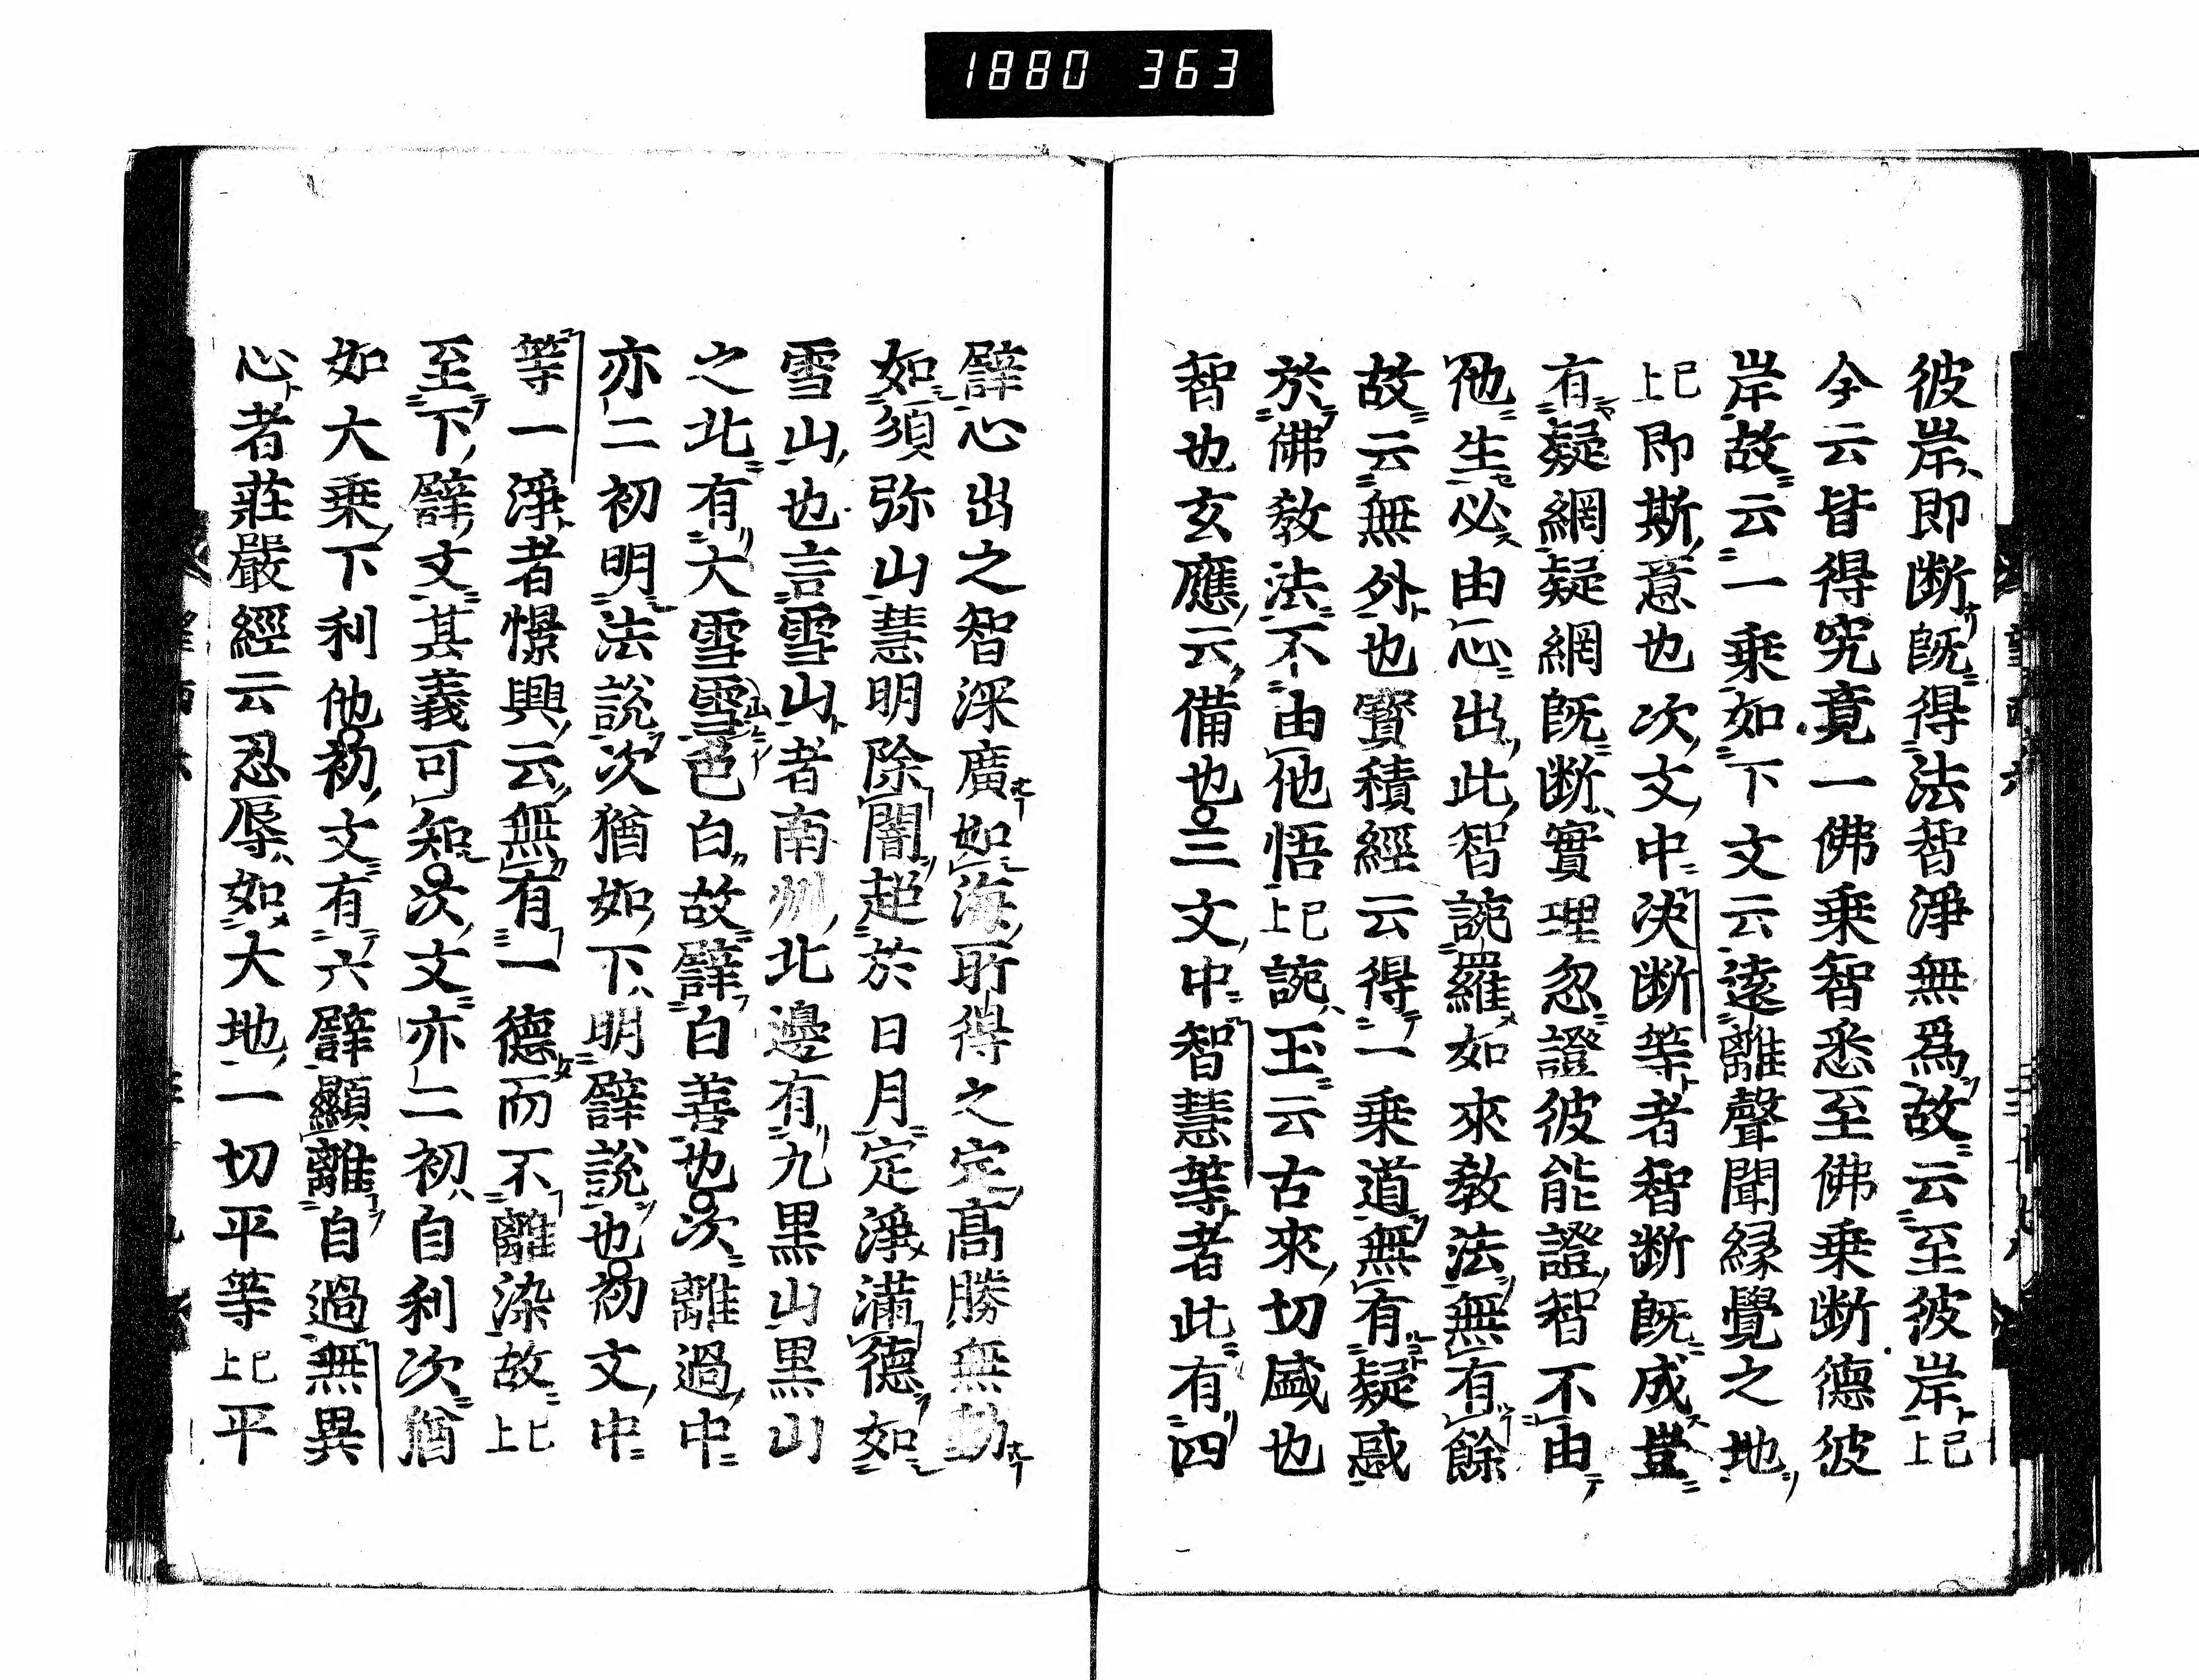 1880 363
彼岸即断既得法智淨無爲故云至彼岸已上
今云皆得究竟一佛乗智悉至佛乗断德彼
岸故云一乗如下文云遠離聲聞縁覺之地
已上即斯意也次文中决断等者智断既成豈
有疑網疑網既断實理忽證彼能證智不由
他生必由心出此智謊羅如來教法無有餘
故云無外也寳積經云得一乗道無有疑惑
於佛敎法不由他悟已上謊玉云古來切盛也
智也玄應云備也三文中智慧等者此有四
譬心出之智深廣如海所得之定髙勝無動
如須弥山慧明除闇超於日月定淨滿德如
雪山也言雪山者南州北邊有九黒山黒山
之北有大雪雪色白故譬白善也次離過中
山イ
亦二初明法説次猶如下明譬説也初文中
等一淨者憬興云無有一德而不離染故已上
至下譬文其義可知次文亦二初自利次猶
如大乗下利他初文有六譬顯離自過無異
心者莊嚴經云忍辱如大地一切平等已上平